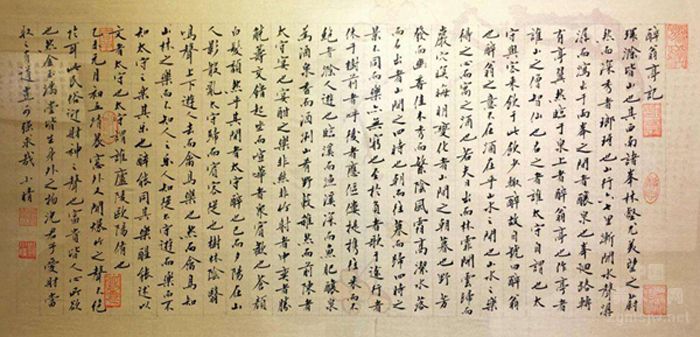 醉翁亭記
環滁皆山也其西南諸峯林壑尤美望之蔚
然而深秀者瑯琊也山行六七里漸聞水聲潺
潺而瀉出于兩峯之間者釀泉也峯迴路轉
有亭翼然臨于泉上者醉翁亭也作亭者
誰山之僧智仙也名之者誰太守自謂也太
守與客來飲于此飲少輒醉故自號曰醉翁
也醉翁之意不在酒在乎山水之間也山水之樂
得之心而寓之酒也若夫日出而林霏開雲歸而
巖穴暝晦明變化者山間之朝暮也野芳
發而幽香佳木秀而繁陰風霜高潔水落
而石出者山間之四時也朝而往暮而歸四時之
景不同而樂亦無窮也至於負者歌于途行者
休于樹前者呼後者應傴僂提攜往來而不
絕者滁人遊也臨溪而漁溪深而魚肥釀泉
為酒泉香而酒洌山肴野蔌雜然而前陳者
太守宴也宴酣之樂非絲非竹射者中奕者勝
觥籌交錯起坐而諠嘩者眾賓歡也蒼顏
白髮頹然乎其間者太守醉也已而夕陽在山
人影散亂太守歸而賓客從也樹林陰翳
鳴聲上下遊人去而禽鳥樂也然而禽鳥知
山林之樂而不知人之樂人知從太守遊而樂而不
知太守之樂其樂也醉能同其樂醒能述以
文者太守也太守謂誰廬陵歐陽脩也
乙未元月初五清晨窗外又聞爆竹之聲不絕
於耳此民俗迎財神之聲也富貴皆人心所欲
也然金玉滿堂皆生身外之物況君子愛財當
取之有道豈可強求哉 小晴